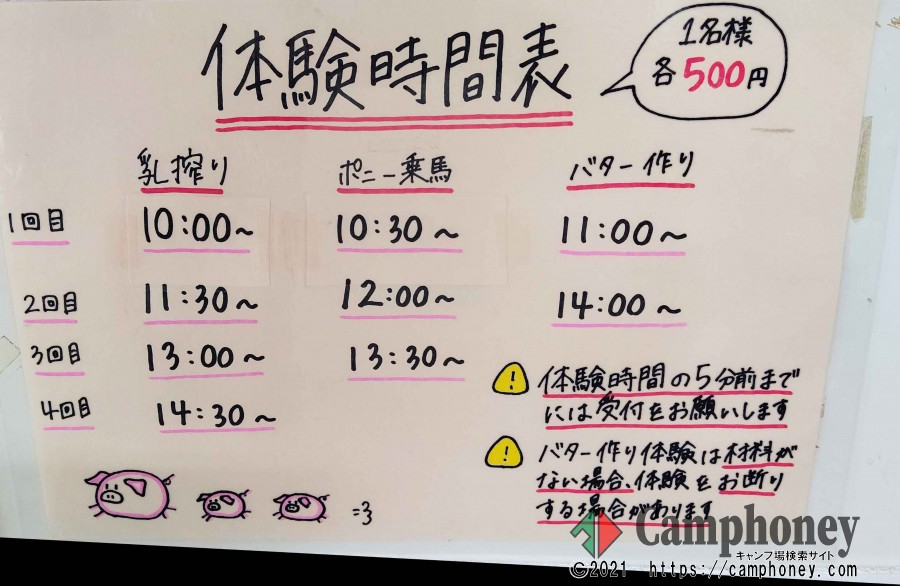 体験時間表
1名様
各500円
乳搾り ポニー乗馬 バター作り
1回目 10:00～ 10:30～ 11:00～
2回目 11:30～ 12:00～ 14:00～
3回目 13:00～ 13:30～
4回目 14:30～
体験時間の5分前まで
には受付をお願いします
バター作り体験は材料が
ない場合、体験をお断り
する場合があります
=3
Camphoney
キャンプ場検索サイト
©2021 https://camphoney.com